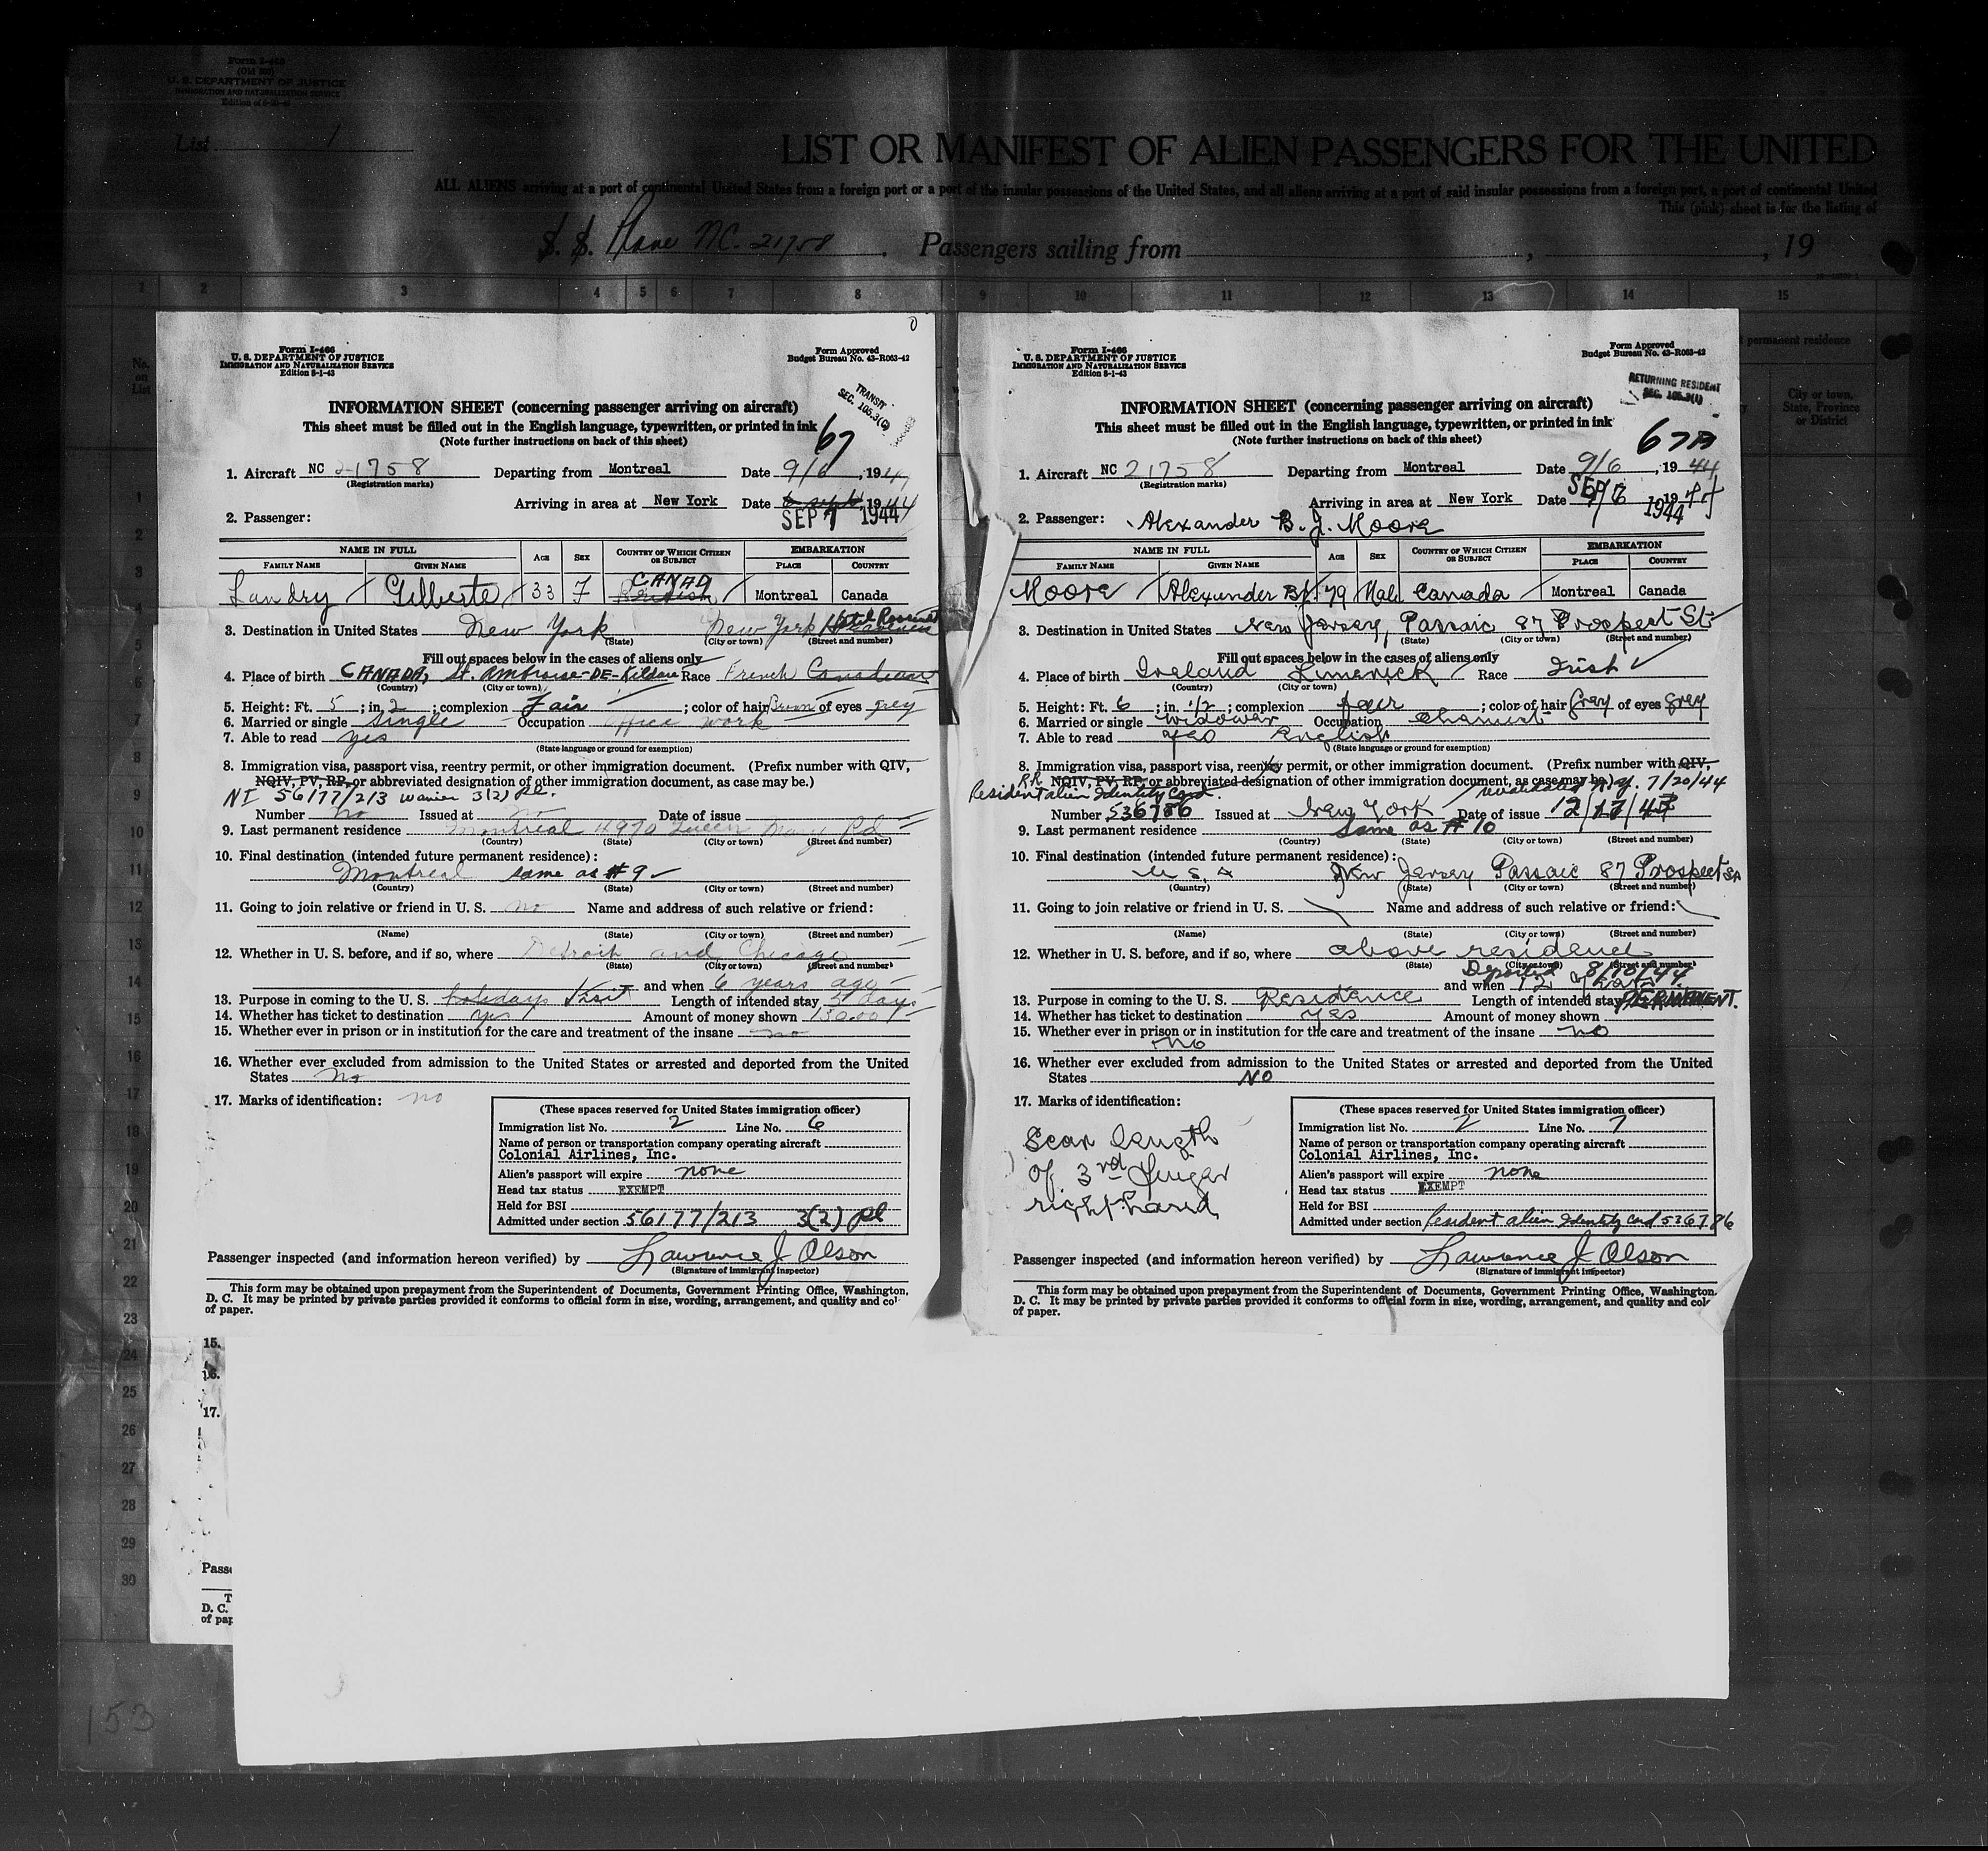 Form I-466
(Old 500)
U. S. DEPARTMENT OF JUSTICE
IMMIGRATION AND NATURALIZATION SERVICE
List 1
LIST OR MANIFEST OF ALIEN PASSENGERS FOR THE UNITED
ALL ALIENS arriving at a port of continental United States from a foreign port or a port of the insular possessions of the United States, and all aliens arriving at a port of said insular possessions from a foreign port, a port of continental United
This (pink) sheet is for the listing of
S. S. Plane NC. 21758. Passengers sailing from , , 19
1 2 3 4 5 6 7 8 9 10 11 12 13 14 15
No. on List
permanent residence
City or town, State, Province or District
Form I-466
U. S. DEPARTMENT OF JUSTICE
IMMIGRATION AND NATURALIZATION SERVICE
Edition 8-1-43
Form Approved
Budget Bureau No. 43-R063-42
TRANSIT
SEC. 105.3(
INFORMATION SHEET (concerning passenger arriving on aircraft)
This sheet must be filled out in the English language, typewritten, or printed in ink
(Note further instructions on back of this sheet)
67
1. Aircraft NC 21758 Departing from Montreal Date 9/6, 1944
(Registration marks)
Arriving in area at New York Date 6 sept 1944
SEP 7 1944
2. Passenger:
NAME IN FULL AGE SEX COUNTRY OF WHICH CITIZEN OR SUBJECT EMBARKATION
FAMILY NAME GIVEN NAME PLACE COUNTRY
Landry Gilberte 33 F CANAD British Montreal Canada
3. Destination in United States New York New York Hotel Roosevelt
(State) (City or town) (Street and number)
Fill out spaces below in the cases of aliens only
4. Place of birth CANADA, St. Ambroise-DE-Kildare Race French Canadian
(Country) (City or town)
5. Height: Ft. 5; in. 2; complexion Fair; color of hair Brown of eyes grey
6. Married or single Single Occupation office work
7. Able to read yes
(State language or ground for exemption)
8. Immigration visa, passport visa, reentry permit, or other immigration document. (Prefix number with QIV,
NQIV, PV, RP, or abbreviated designation of other immigration document, as case may be.)
NI 56177/213 waiver 3(2) pl.
Number no Issued at Date of issue
9. Last permanent residence Montreal 4970 Queen Mary Rd
(Country) (State) (City or town) (Street and number)
10. Final destination (intended future permanent residence):
Montreal same as #9
(Country) (State) (City or town) (Street and number)
11. Going to join relative or friend in U. S. no Name and address of such relative or friend:
(Name) (State) (City or town) (Street and number)
12. Whether in U. S. before, and if so, where Detroit and Chicago
(State) (City or town) (Street and number)
and when 6 years ago
13. Purpose in coming to the U. S. holidays Visit Length of intended stay 5 days
14. Whether has ticket to destination yes Amount of money shown 150.00
15. Whether ever in prison or in institution for the care and treatment of the insane no
16. Whether ever excluded from admission to the United States or arrested and deported from the United
States no
17. Marks of identification: no
(These spaces reserved for United States immigration officer)
Immigration list No. 2 Line No. 6
Name of person or transportation company operating aircraft
Colonial Airlines, Inc.
Alien's passport will expire none
Head tax status EXEMPT
Held for BSI
Admitted under section 56177/213 3(2) pl
Passenger inspected (and information hereon verified) by Lawrence J. Olson
(Signature of Immigrant Inspector)
This form may be obtained upon prepayment from the Superintendent of Documents, Government Printing Office, Washington,
D. C. It may be printed by private parties provided it conforms to official form in size, wording, arrangement, and quality and col
of paper.
Form I-466
U. S. DEPARTMENT OF JUSTICE
IMMIGRATION AND NATURALIZATION SERVICE
Edition 8-1-43
Form Approved
Budget Bureau No. 43-R063-42
RETURNING RESIDENT
SEC. 105.3(1)
INFORMATION SHEET (concerning passenger arriving on aircraft)
This sheet must be filled out in the English language, typewritten, or printed in ink
(Note further instructions on back of this sheet)
67
1. Aircraft NC 21758 Departing from Montreal Date 9/6, 1944
(Registration marks)
Arriving in area at New York Date 9/6 1944
SEP 7 1944
2. Passenger: Alexander B. J. Moore
NAME IN FULL AGE SEX COUNTRY OF WHICH CITIZEN OR SUBJECT EMBARKATION
FAMILY NAME GIVEN NAME PLACE COUNTRY
Moore Alexander BJ 79 Male Canada Montreal Canada
3. Destination in United States New Jersey, Passaic 87 Prospect St.
(State) (City or town) (Street and number)
Fill out spaces below in the cases of aliens only
4. Place of birth Ireland Limerick Race Irish
(Country) (City or town)
5. Height: Ft. 6; in. 1/2; complexion fair; color of hair Gray of eyes Gray
6. Married or single Widower Occupation Chemist
7. Able to read yes English
(State language or ground for exemption)
8. Immigration visa, passport visa, reentry permit, or other immigration document. (Prefix number with QIV,
RR NQIV, PV, RP, or abbreviated designation of other immigration document, as case may be.)
Resident alien Identity Card. revalidated N.Y. 7/20/44
Number 536786 Issued at New York Date of issue 12/17/43
9. Last permanent residence Same as #10
(Country) (State) (City or town) (Street and number)
10. Final destination (intended future permanent residence):
U S A New Jersey Passaic 87 Prospect St
(Country) (State) (City or town) (Street and number)
11. Going to join relative or friend in U. S. Name and address of such relative or friend:
(Name) (State) (City or town) (Street and number)
12. Whether in U. S. before, and if so, where above residence
(State) (City or town) (Street and number)
Departed 8/10/44.
and when 12 years
13. Purpose in coming to the U. S. Residence Length of intended stay PERMANENT.
14. Whether has ticket to destination yes Amount of money shown
15. Whether ever in prison or in institution for the care and treatment of the insane no
no
16. Whether ever excluded from admission to the United States or arrested and deported from the United
States NO
17. Marks of identification:
Scar length
of 3rd finger
right hand
(These spaces reserved for United States immigration officer)
Immigration list No. 2 Line No. 7
Name of person or transportation company operating aircraft
Colonial Airlines, Inc.
Alien's passport will expire none
Head tax status EXEMPT
Held for BSI
Admitted under section Resident alien Identity Card 536786
Passenger inspected (and information hereon verified) by Lawrence J. Olson
(Signature of Immigrant Inspector)
This form may be obtained upon prepayment from the Superintendent of Documents, Government Printing Office, Washington,
D. C. It may be printed by private parties provided it conforms to official form in size, wording, arrangement, and quality and colo
of paper.
15.
16.
17.
Passe
T
D. C.
of pap
153